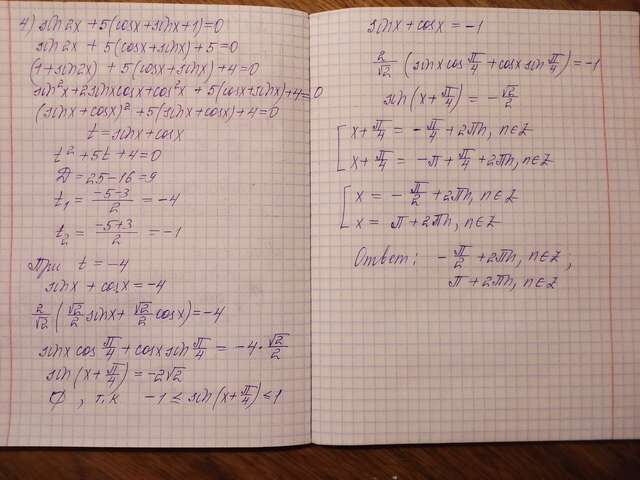 4) sin2x + 5(cosx + sinx + 1) = 0
sin2x + 5(cosx + sinx) + 5 = 0
(1 + sin2x) + 5(cosx + sinx) + 4 = 0
sin²x + 2sinxcosx + cos²x + 5(cosx + sinx) + 4 = 0
(sinx + cosx)² + 5(sinx + cosx) + 4 = 0
t = sinx + cosx
t² + 5t + 4 = 0
D = 25 - 16 = 9
t₁ = (-5-3)/2 = -4
t₂ = (-5+3)/2 = -1
При t = -4
sinx + cosx = -4
2/√2 (√2/2 sinx + √2/2 cosx) = -4
sinx cos π/4 + cosx sin π/4 = -4 · √2/2
sin(x + π/4) = -2√2
∅, т.к -1 ≤ sin(x + π/4) ≤ 1
sinx + cosx = -1
2/√2 (sinx cos π/4 + cosx sin π/4) = -1
sin(x + π/4) = -√2/2
[ x + π/4 = -π/4 + 2πn, n∈Z
x + π/4 = -π + π/4 + 2πn, n∈Z
[ x = -π/2 + 2πn, n∈Z
x = π + 2πn, n∈Z
Ответ: -π/2 + 2πn, n∈Z;
π + 2πn, n∈Z